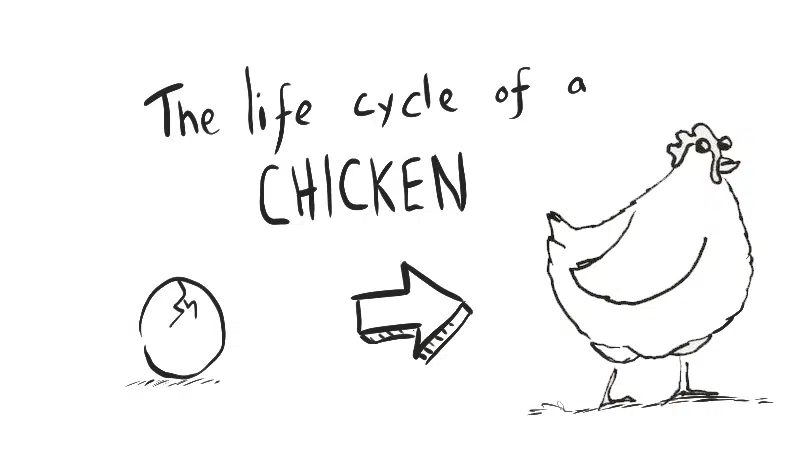 The life cycle of a
CHICKEN